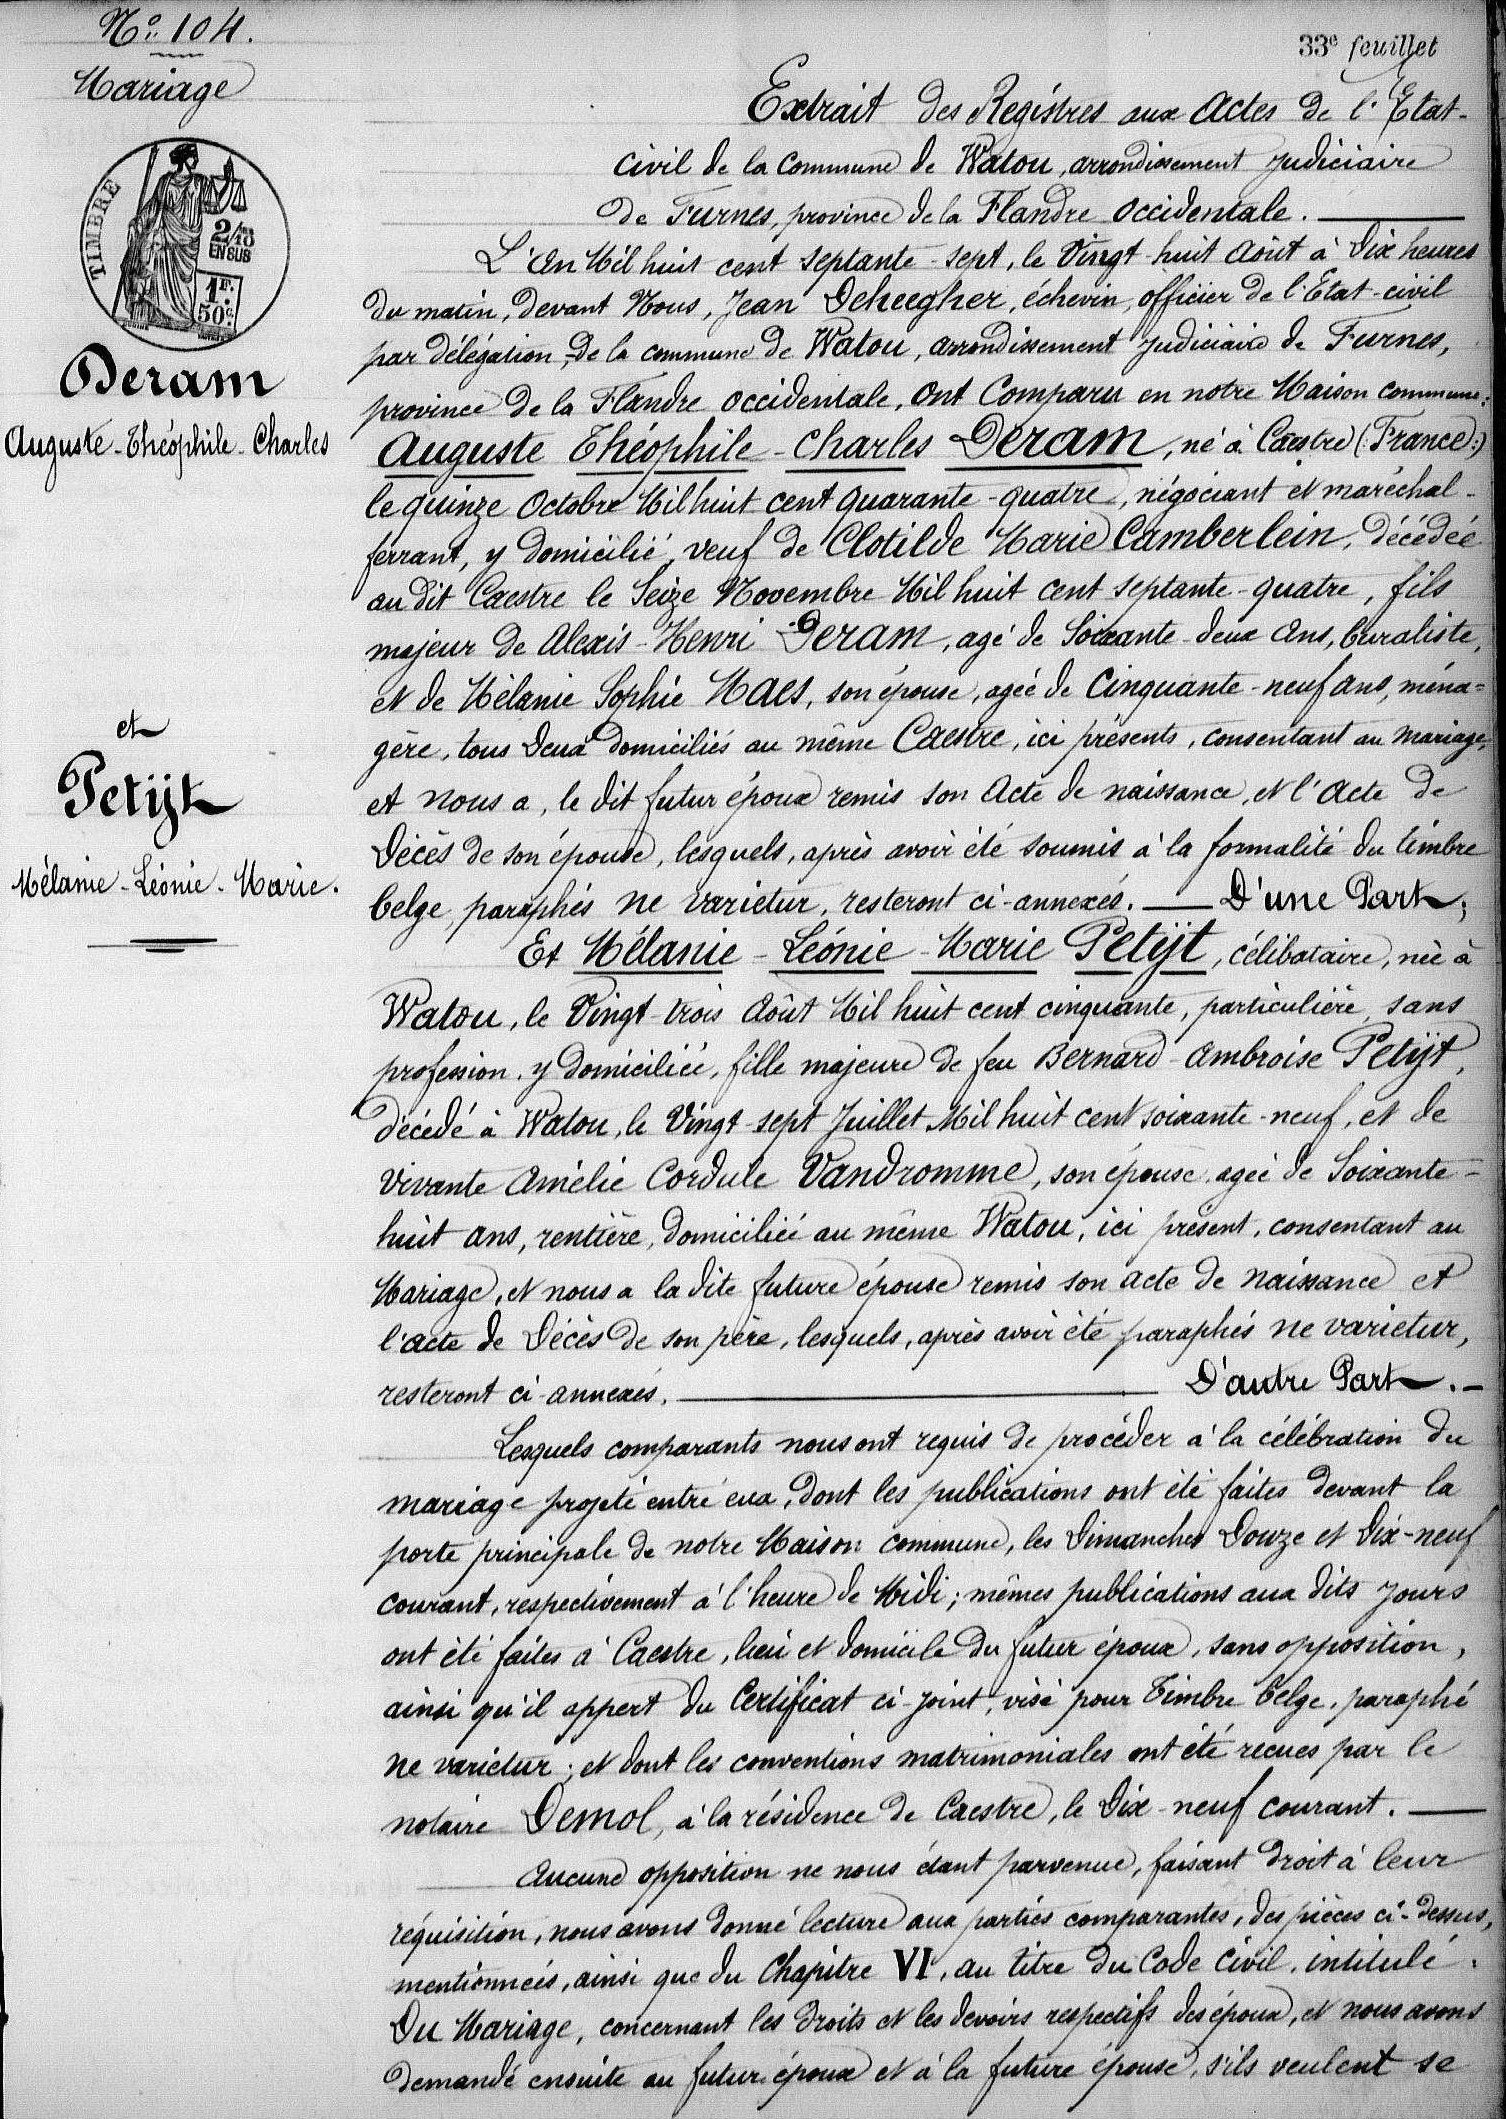 N° 104.
Mariage
TIMBRE
2/10
EN SUS
1F.
50c.
Deram
Auguste-Théophile-Charles
et
Petijt
Mélanie-Léonie-Marie.
33e feuillet
Extrait des Registres aux Actes de l'Etat-
civil de la commune de Watou, arrondissement judiciaire
de Furnes, province de la Flandre occidentale.
L'An Mil huit cent septante-sept, le Vingt-huit Août à Dix heures
du matin, devant Nous, Jean Deheegher, échevin, officier de l'Etat-civil
par délégation de la commune de Watou, arrondissement judiciaire de Furnes,
province de la Flandre occidentale, ont Comparu en notre Maison commune:
Auguste Théophile-Charles Deram, né à Caestre (France:)
le quinze Octobre Mil huit cent quarante-quatre, négociant et maréchal-
ferrant, y domicilié, veuf de Clotilde Marie Camberlein, décédée
au dit Caestre le Seize Novembre Mil huit cent septante-quatre, fils
majeur de Alexis-Henri Deram, agé de Soixante-deux ans, buraliste,
et de Mélanie Sophie Maes, son épouse, agée de Cinquante-neuf ans, ména=
gère, tous deux domiciliés au même Caestre, ici présents, consentant au mariage,
et nous a, le dit futur époux remis son Acte de naissance, et l'acte de
Décès de son épouse, lesquels, après avoir été soumis à la formalité du timbre
belge, paraphés ne varietur, resteront ci-annexés. — D'une Part;
Et Mélanie-Léonie-Marie Petijt, célibataire, née à
Watou, le Vingt-trois Août Mil huit cent cinquante, particulière, sans
profession, y domiciliée, fille majeure de feu Bernard-Ambroise Petijt,
décédé à Watou, le Vingt-sept Juillet Mil huit cent soixante-neuf, et de
vivante Amélie Cordule Vandromme, son épouse, agée de Soixante-
huit ans, rentière, domiciliée au même Watou, ici présent, consentant au
Mariage, et nous a la dite future épouse remis son acte de naissance et
l'acte de Décès de son père, lesquels, après avoir été paraphés ne varietur,
resteront ci-annexés. — D'autre Part.—
Lesquels comparants nous ont requis de procéder à la célébration du
mariage projeté entre eux, dont les publications ont été faites devant la
porte principale de notre Maison commune, les Dimanches Douze et Dix-neuf
courant, respectivement à l'heure de Midi; mêmes publications aux dits jours
ont été faites à Caestre, lieu et domicile du futur époux, sans opposition,
ainsi qu'il appert du Certificat ci-joint, visé pour Timbre belge, paraphé
ne varietur; et dont les conventions matrimoniales ont été recues par le
notaire Demol, à la résidence de Caestre, le Dix-neuf courant. —
Aucune opposition ne nous étant parvenue, faisant droit à leur
réquisition, nous avons donné lecture aux parties comparantes, des pièces ci-dessus,
mentionnées, ainsi que du Chapitre VI, au titre du Code Civil, intitulé:
Du Mariage, concernant les droits et les devoirs respectifs des époux, et nous avons
demandé ensuite au futur époux et à la future épouse, s'ils veulent se